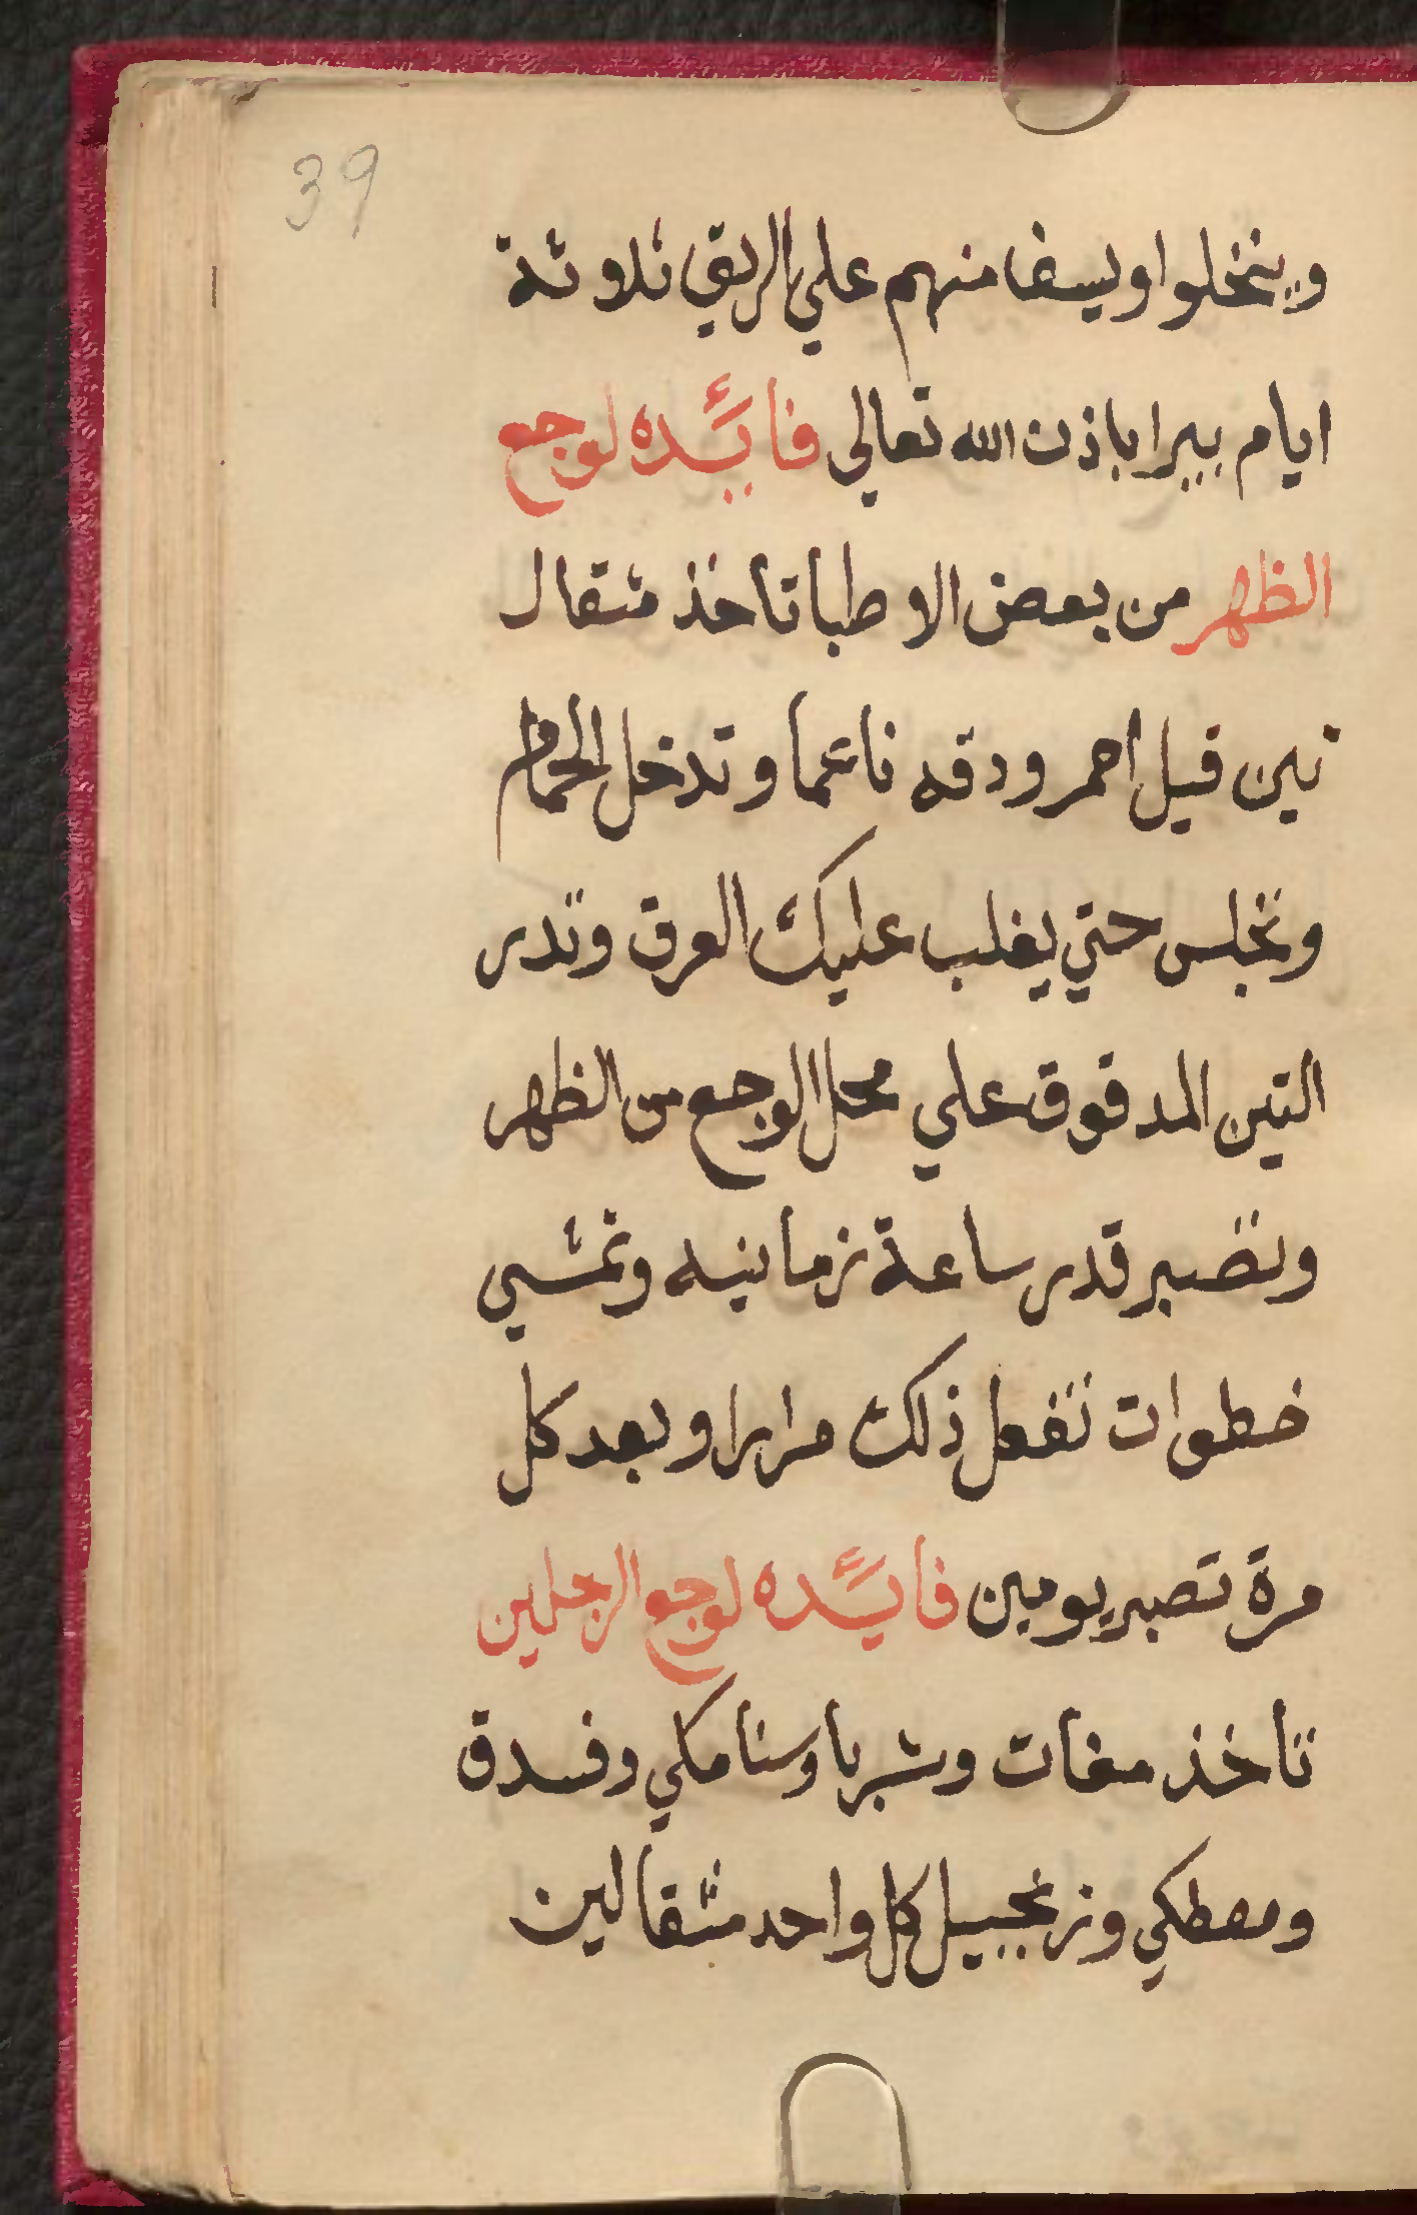 39
وينخلوا ويسفا منهم علي الريق ثلاوثة
ايام يبرا باذن الله تعالي فايده لوجع
الظهر من بعض الاوطبا تاخذ مثقال
تين فيل احمر ودقه ناعما وتدخل الحمام
وتجلس حتي يغلب عليك العرق وتدر
التين المدقوق علي محل الوجع من الظهر
وتصبر قدر ساعة زمانيه وتمشي
خطوات تفعل ذلك مرارا وبعد كل
مرة تصبر يومين فايده لوجع الرجلين
تاخذ مغات وشربا وسنامكي وفسدق
ومصطكي وزنجبيل كل واحد مثقالين